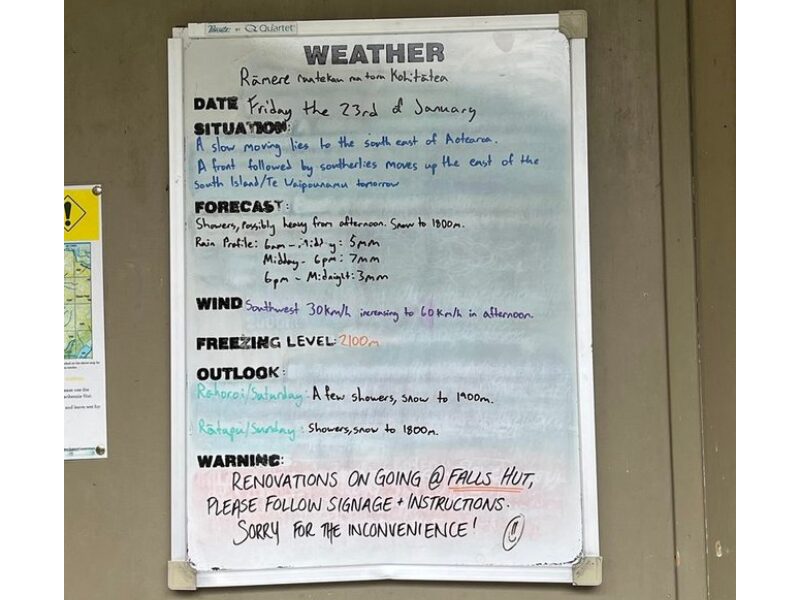 Quartet
WEATHER
Rāmere ruatekau ma toru Kohitātea
DATE Friday the 23rd of January
SITUATION:
A slow moving lies to the south east of Aotearoa.
A front followed by southerlies moves up the east of the
South Island/Te Waipounamu tomorrow
FORECAST:
Showers, possibly heavy from afternoon. Snow to 1800m.
Rain Profile: 6am - : 5mm
Midday - 6pm: 7mm
6pm - Midnight: 3mm
WIND Southwest 30km/h increasing to 60km/h in afternoon.
FREEZING LEVEL: 2100m
OUTLOOK:
Rāhoroi/Saturday: A few showers, snow to 1900m.
Rātapu/Sunday: Showers, snow to 1800m.
WARNING:
RENOVATIONS ON GOING @ FALLS HUT,
PLEASE FOLLOW SIGNAGE + INSTRUCTIONS.
SORRY FOR THE INCONVENIENCE!